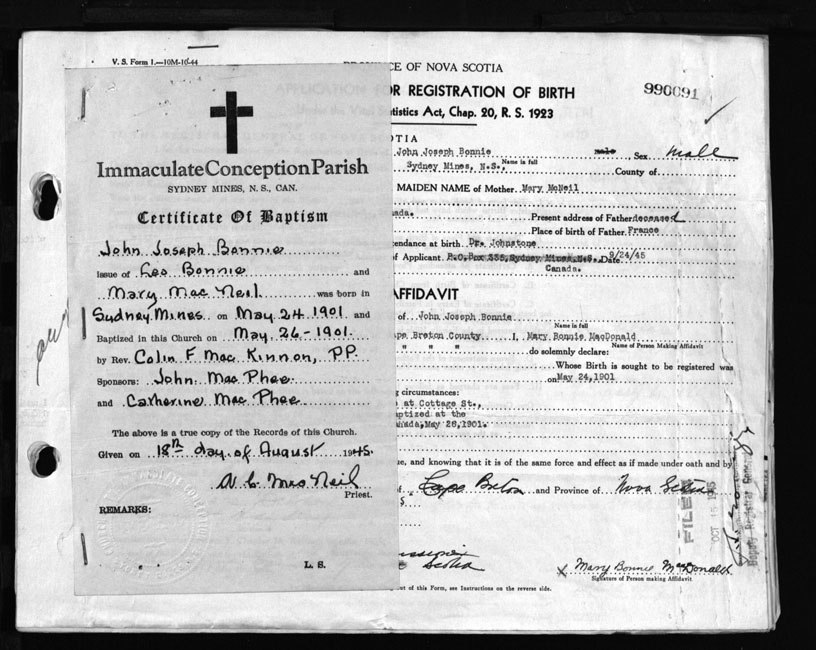 V. S. Form 1.—10M-10-44
Immaculate Conception Parish
SYDNEY MINES, N. S., CAN.
Certificate Of Baptism
John Joseph Bonnie
issue of Leo Bonnie and
Mary Mac Neil was born in
Sydney Mines on May 24 1901 and
Baptized in this Church on May 26-1901.
by Rev. Colin F. Mac Kinnon, P.P.
Sponsors: John Mac Phee
and Catherine Mac Phee
The above is a true copy of the Records of this Church.
Given on 18th day of August 1945.
Priest.
REMARKS:
L. S.
CE OF NOVA SCOTIA
OR REGISTRATION OF BIRTH
990091
tistics Act, Chap. 20, R. S. 1923
OTIA
John Joseph Bonnie male, Sex male
Name in full
Sydney Mines, N.S., County of
MAIDEN NAME of Mother Mary McNeil
nada. Present address of Father deceased
Place of birth of Father France
endance at birth Dr. Johnstone
of Applicant P.O. Box 335, Sydney Mines, N.S. Date 9/24/45
Canada.
AFFIDAVIT
of John Joseph Bonnie
Name in full
ape Breton County I, Mary Bonnie MacDonald
Name of Person Making Affidavit
" " " do solemnly declare:
Whose Birth is sought to be registered was
on May 24, 1901
ng circumstances:
e at Cottage St.,
aptized at the
anada, May 26, 1901.
ue, and knowing that it is of the same force and effect as if made under oath and by
of Cape Breton and Province of Nova Scotia
FILED
OCT
Scotia
x Mary Bonnie MacDonald
Signature of Person making Affidavit
out of this Form, see Instructions on the reverse side.
Deputy Registrar General